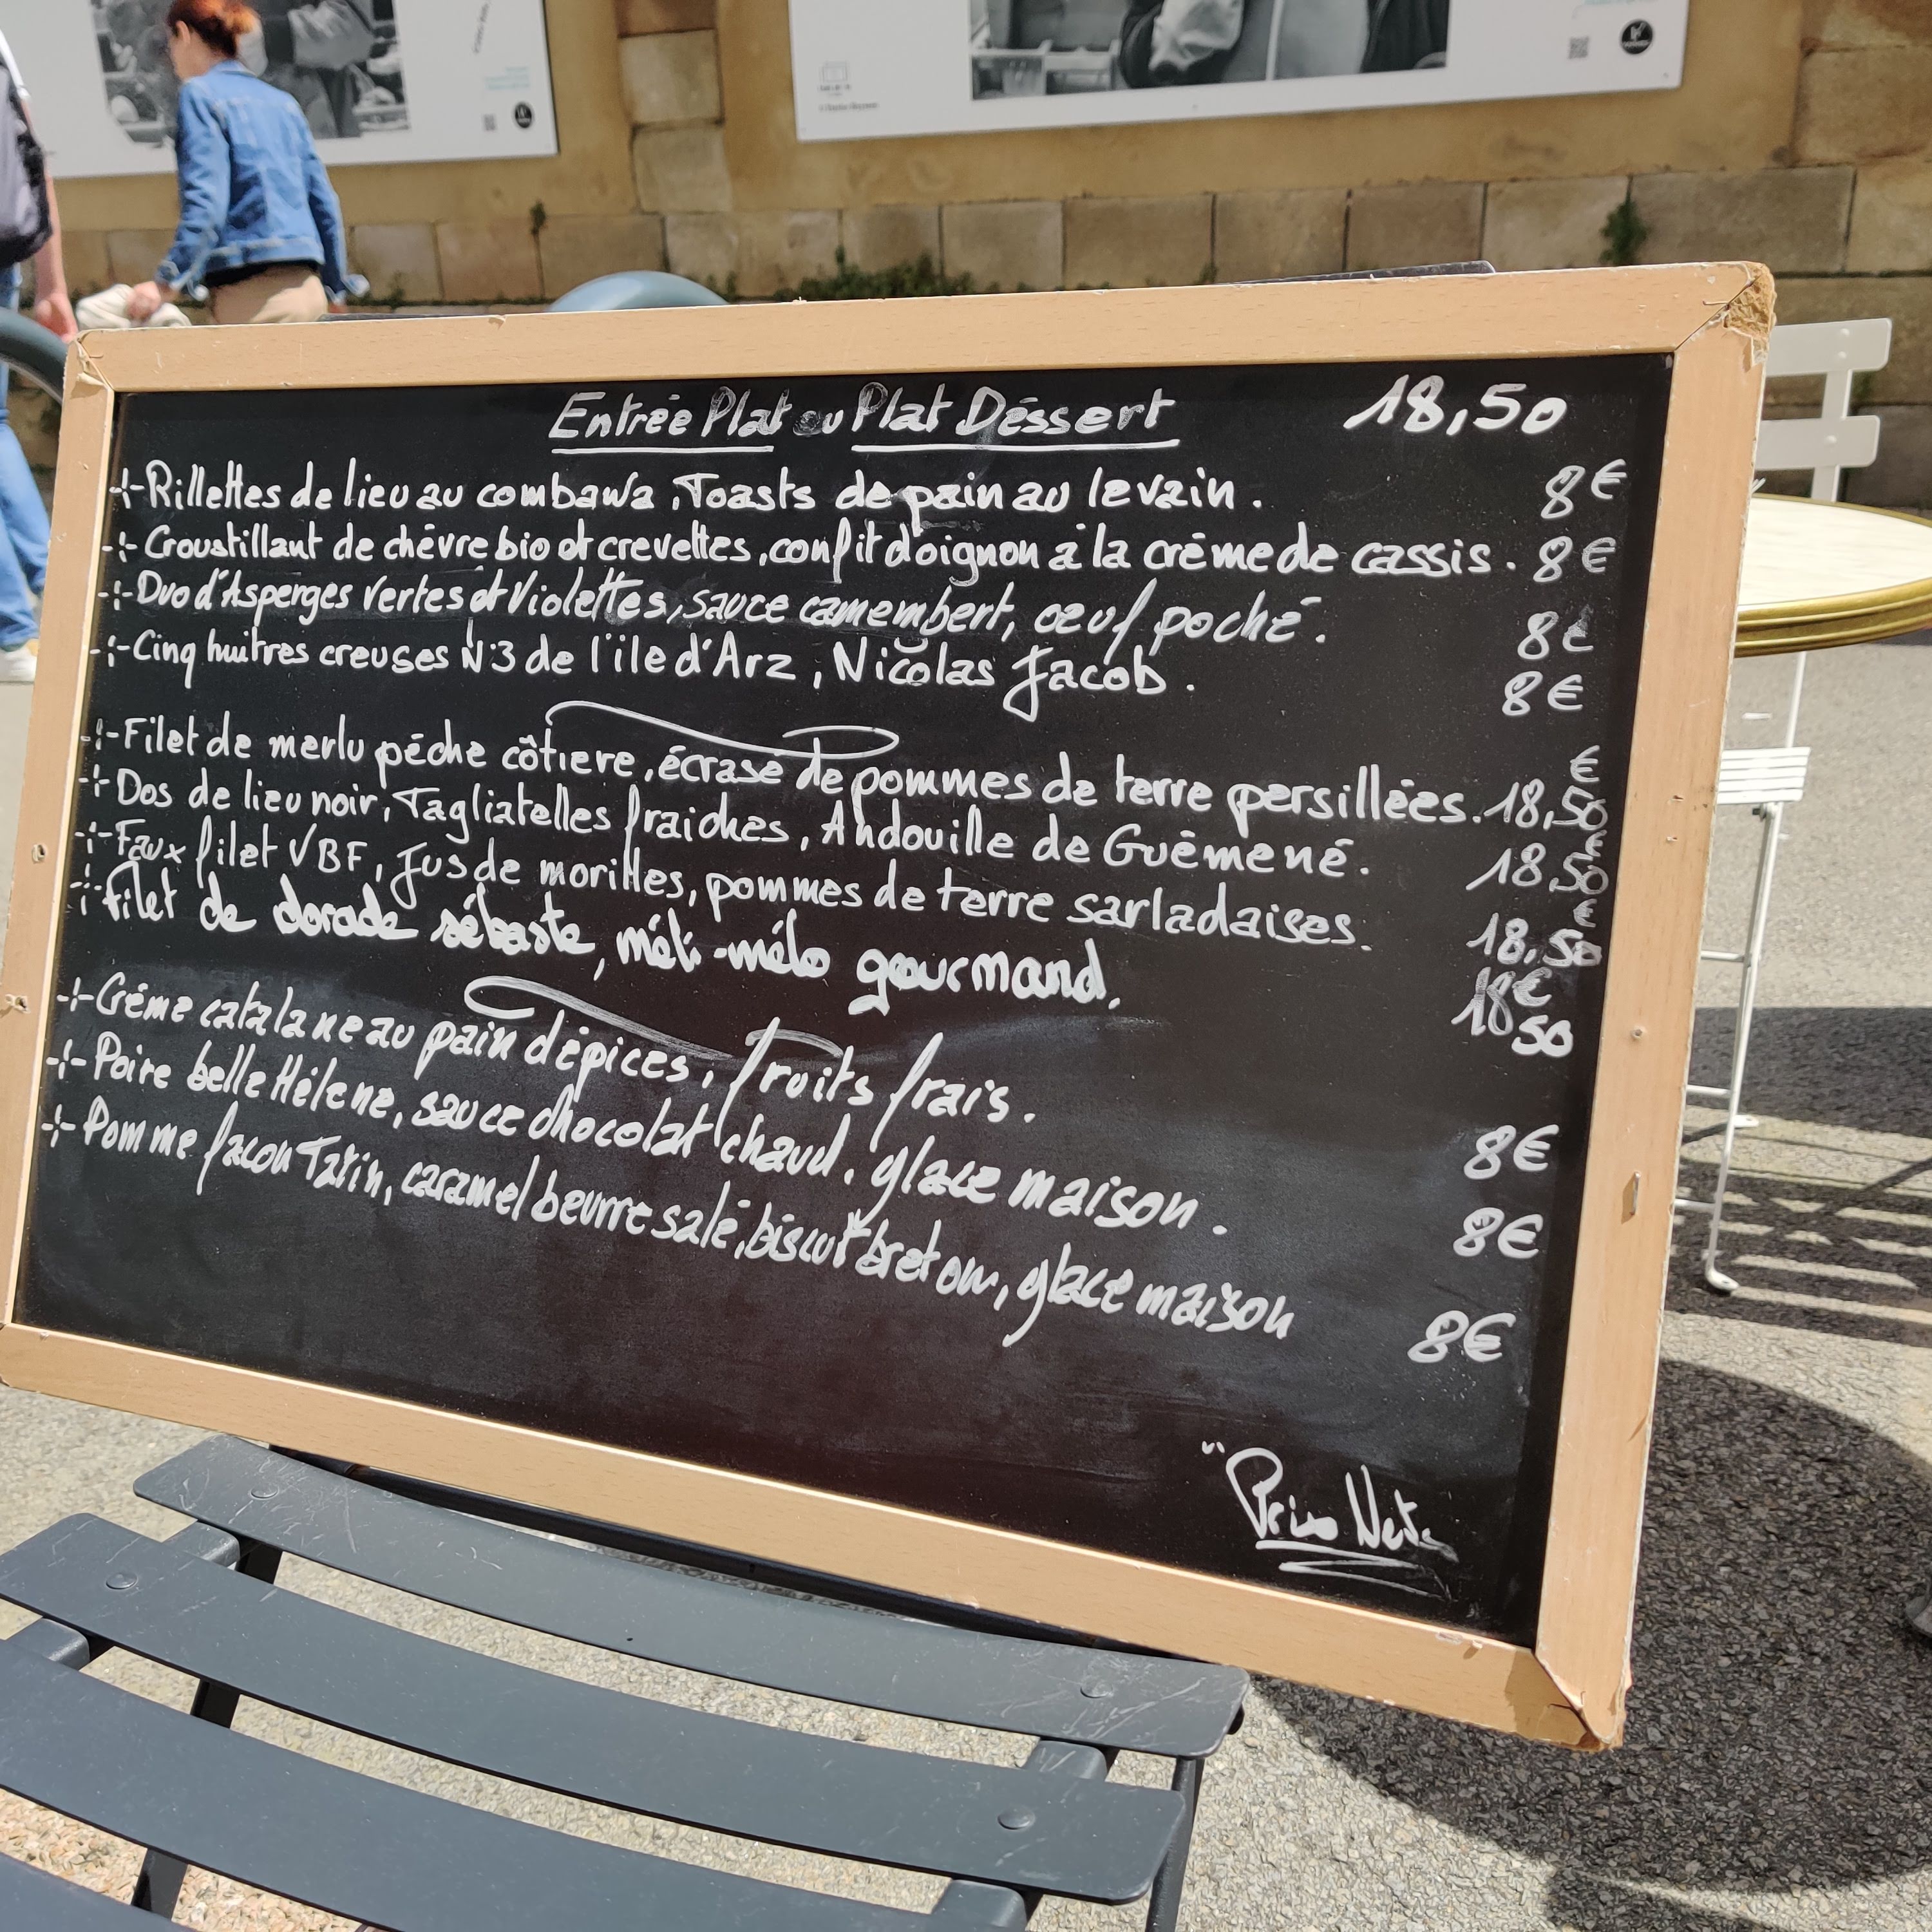 Entrée Plat ou Plat Déssert 18,50
-:- Rillettes de lieu au combawa, Toasts de pain au levain. 8€
-:- Croustillant de chèvre bio et crevettes, confit d'oignon à la crème de cassis. 8€
-:- Duo d'Asperges Vertes et Violettes, sauce camembert, oeuf poché. 8€
-:- Cinq huitres creuses N°3 de l'ile d'Arz, Nicolas Jacob. 8€
-:- Filet de merlu pêche côtiere, écrasé de pommes de terre persillées. 18,50€
-:- Dos de lieu noir, Tagliatelles fraiches, Andouille de Guémené. 18,50€
-:- Faux filet VBF, Jus de morilles, pommes de terre sarladaises. 18,50€
-:- Filet de dorade sébaste, méli-mélo gourmand. 18€50
-:- Créme catalane au pain dépices, fruits frais. 8€
-:- Poire belle Hélene, sauce chocolat chaud, glace maison. 8€
-:- Pomme facon Tatin, caramel beurre salé, biscuit breton, glace maison 8€
"Prix Nets